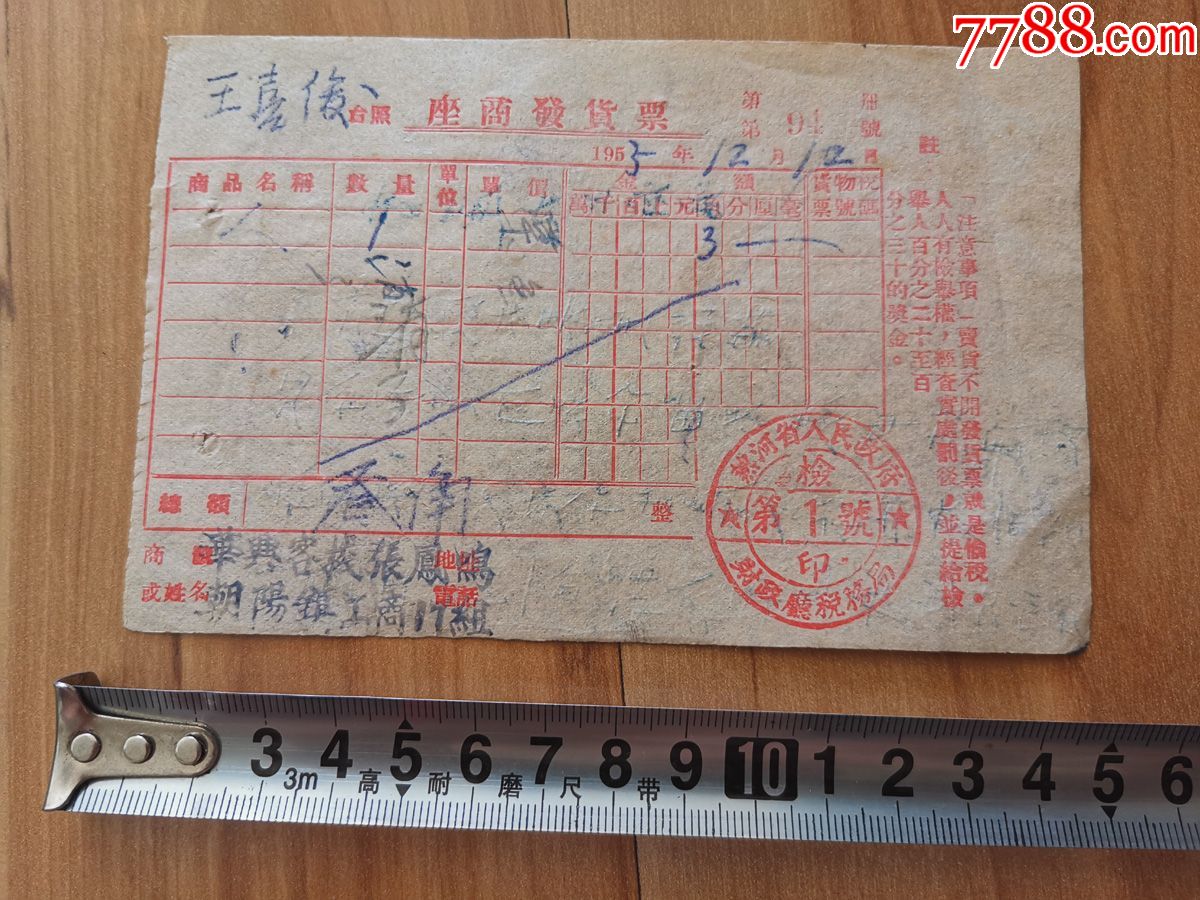 7788.com
王喜俊
台照
座商發貨票
第 册
第 91 號
1953年12月12日
註
商品名稱 數量 單位 單價 金額 貨物稅票號碼
萬千百十元角分厘毫
人 1 3一
總額 叁角 整
商號或姓名
地址
電話
華興客棧張鳳鳴
朝陽鎮工商17組
「注意事項」賣貨不開發貨票就是偷稅。
人人有檢舉權,經查實處罰後,並提給檢
舉人百分之二十至百
分之三十的獎金。
熱河省人民政府
檢
★第1號★
印
財政廳稅務局
3 4 5 6 7 8 9 10 1 2 3 4 5 6
3m 高耐磨尺带